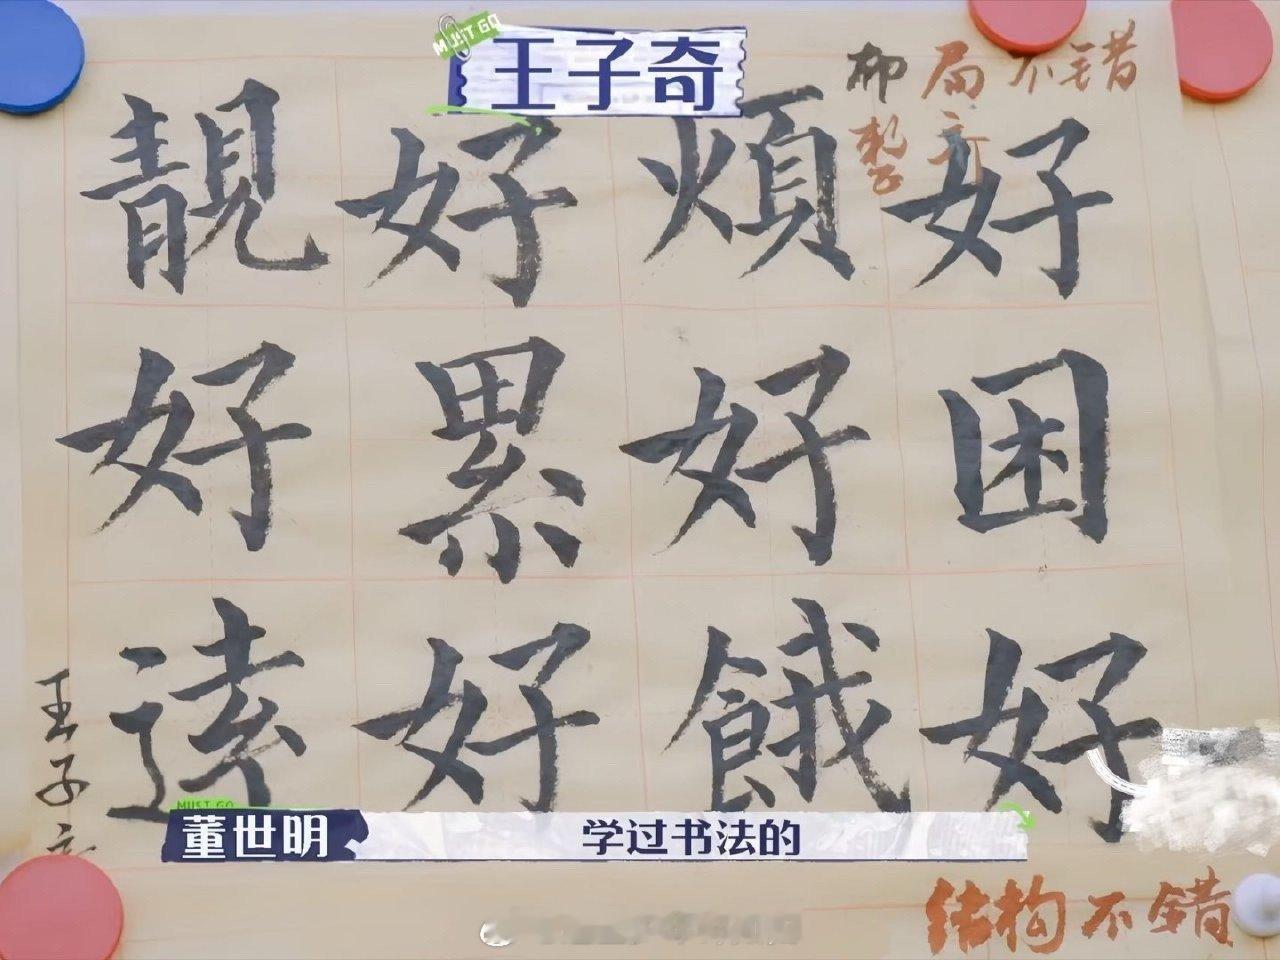 MUST GO
王子奇
布局不错
整齐
好困好
煩好餓
好累好
靚好遠
王子
MUST GO
董世明
学过书法的
结构不错